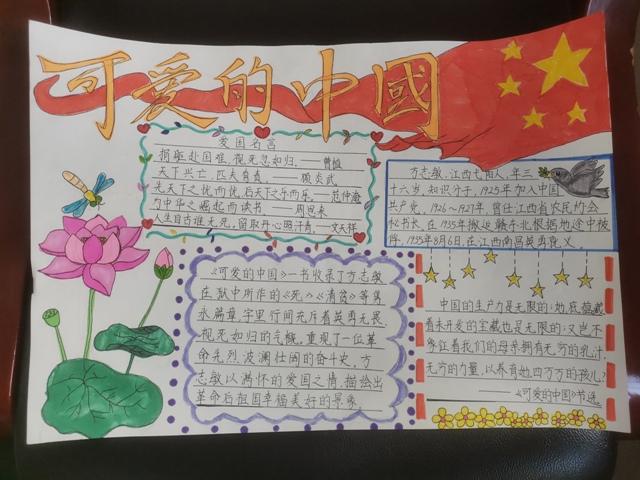 可爱的中國
爱国名言
捐躯赴国难,视死忽如归。——曹植
天下兴亡,匹夫有责。——顾炎武
先天下之忧而忧,后天下之乐而乐。——范仲淹
为中华之崛起而读书。——周恩来
人生自古谁无死,留取丹心照汗青。——文天祥
方志敏,江西弋阳人,年三
十六岁,知识分子,1925年加入中国
共产党。1926~1927年,曾任江西省农民协会
秘书长,在1935年搬运赣东北根据地途中被
俘,1935年8月6日,在江西南昌英勇就义。
《可爱的中国》一书收录了方志敏
在狱中所作的《死》《清贫》等隽
永篇章,字里行间充斥着英勇无畏、
视死如归的气慨,重现了一位革
命先烈,波澜壮阔的奋斗史,方
志敏以满怀的爱国之情,描绘出
革命后祖国幸福美好的景象
中国的生产力是无限的;地底蕴藏
着未开发的宝藏也是无限的;又岂不
象征着我们的母亲拥有无穷的乳汁,
无穷的力量,以养育她四万万的孩儿?
——《可爱的中国》节选